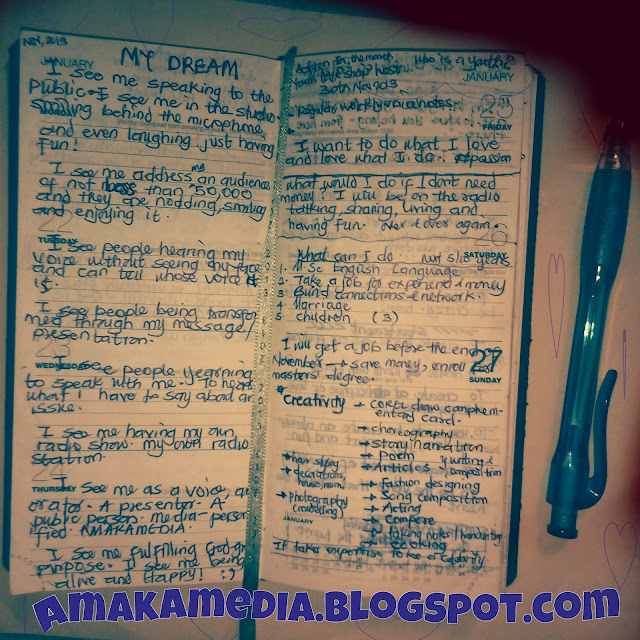 Nov, 2013
JANUARY
MY DREAM
I see me speaking to the
public. I see me in the studio
MONDAY
smiling behind the microphone
and even laughing just having
fun!
I see me address my an audience
of not than 50,000
and they are nodding, smiling
and enjoying it.
TUESDAY
I see people hearing my
voice without seeing my face
and can tell whose voice
is.
I see people being transfor
med through my message/
presentation.
WEDNESDAY
I see people yearning
to speak with me. To hear
what I have to say about an
issue.
I see me having my own
radio show. my own radio
station.
THURSDAY
I see me as a voice, an
orator. A presenter. A
public person. media-person
ified. AMAKAMEDIA.
I see me fulfilling God-given
purpose. I see me being
alive and Happy! :)
for the month
who is a youth?
JANUARY
30th Nov 2013
Regular weekly voicenotes
25
FRIDAY
I want to do what I love
and love what I do. passion
what would I do if I dont need
money? I will be on the radio
talking, sharing, living and
having fun. Over & over again.
26
SATURDAY
What can I do. next 5/10 years
1. M.Sc English Language
2. Take a job for experience & money
3. Build connections & network.
4 Marriage
5 children (3)
I will get a job before the end
27
SUNDAY
November → save money, enroll
masters' degree.
*Creativity → COREL draw complem-
entary card.
→ choreography
→ story narration
→ Poem
→ Articles
→ hair styling
→ decorations,
→ Fashion designing
→ Song composition
→ Acting
→ Compere
→ photography
(modeling)
→ taking notes / handwriting
→ cooking
JANUARY
It takes expertise to be a celebrity
AMAKAMEDIA.BLOGSPOT.COM